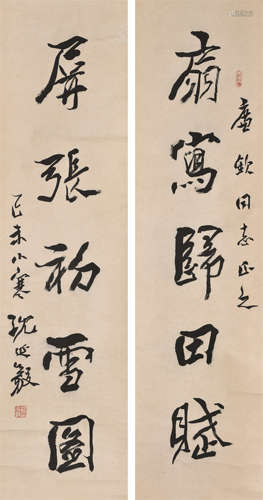 同志正之
扇寫歸田賦
屏張初雪圖
己未小寒 沈延毅